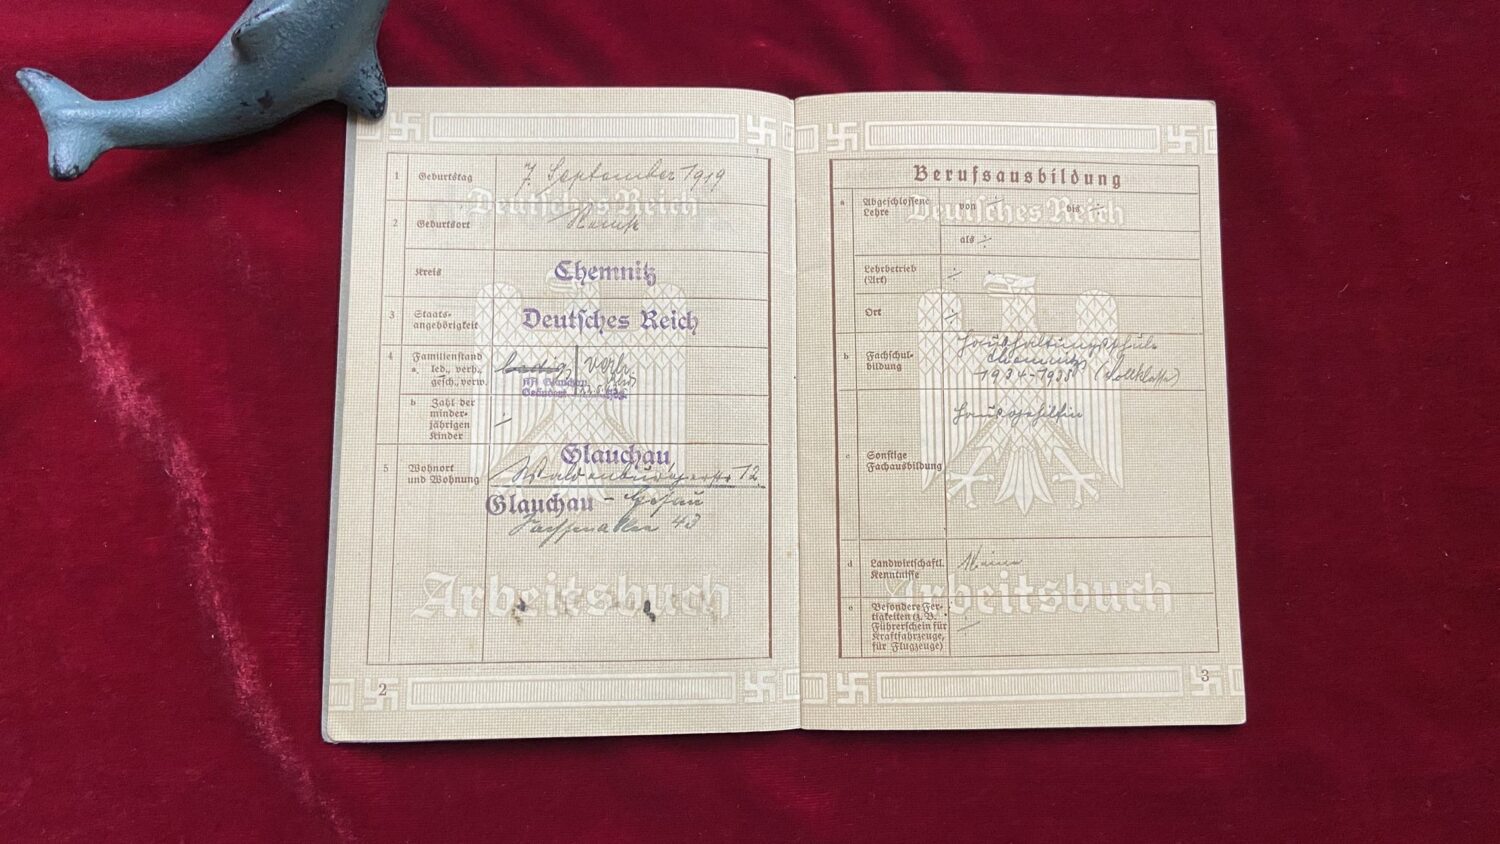 1 Geburtstag 7. September 1919
Deutsches Reich
2 Geburtsort
Kreis Chemnitz
3 Staats-
angehörigkeit Deutsches Reich
4 Familienstand ledig verh.
a. led., verh.,
gesch., verw.
b Zahl der
minder-
jährigen
Kinder ⁒
5 Wohnort
und Wohnung
Glauchau
Waldenburgerstr. 12.
Glauchau - Gesau
43
Arbeitsbuch
2
Berufsausbildung
a Abgeschlossene
Lehre
von ⁒ bis ⁒
Deutsches Reich
als ⁒
Lehrbetrieb
(Art) ⁒
Ort ⁒
b Fachschul-
bildung
Haushaltungsschule
Chemnitz
1934-1935 (Vollklasse)
c Sonstige
Fachausbildung
Hausgehilfin
d Landwirtschaftl.
Kenntnisse
Keine
Arbeitsbuch
e Besondere Fer-
tigkeiten (z. B.
Führerschein für
Kraftfahrzeuge,
für Flugzeuge) ⁒
3